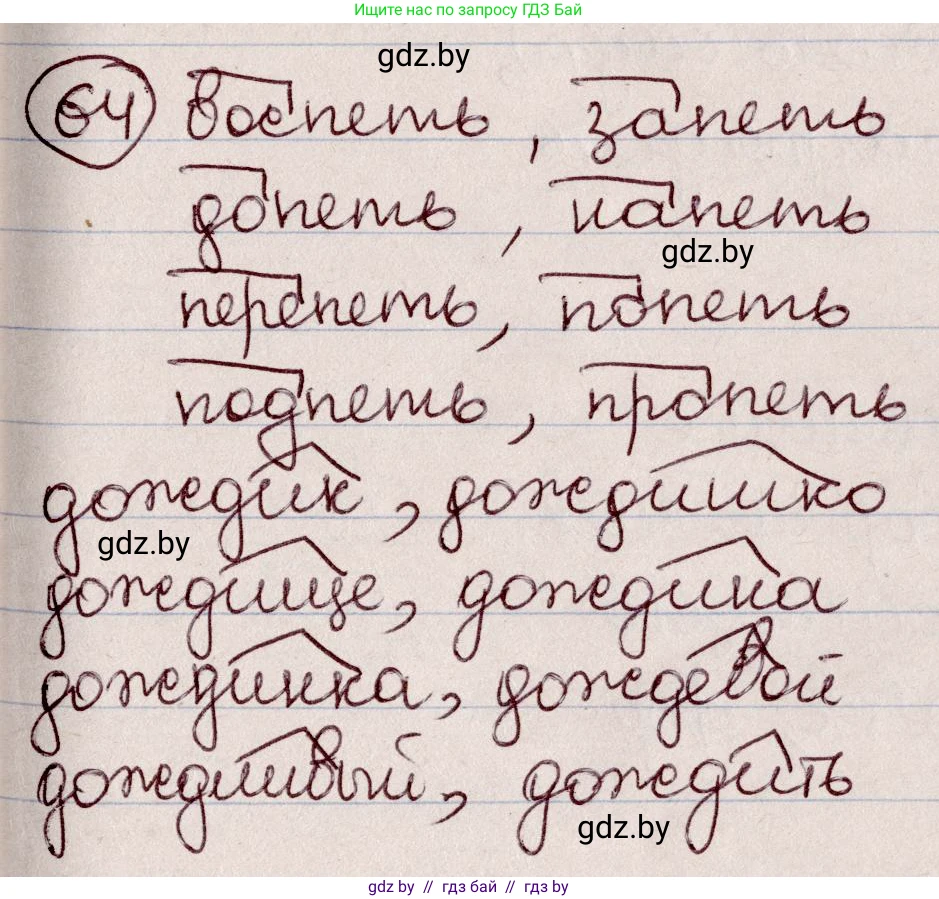 Ищите нас по запросу ГДЗ Бай
gdz.by
64 воспеть, запеть
допеть, напеть
gdz.by
перепеть, попеть
подпеть, пропеть
дождик, дождишко
gdz.by
дождище, дождина
дождинка, дождевой
дождливый, дождить
gdz.by
gdz.by // гдз бай // гдз by